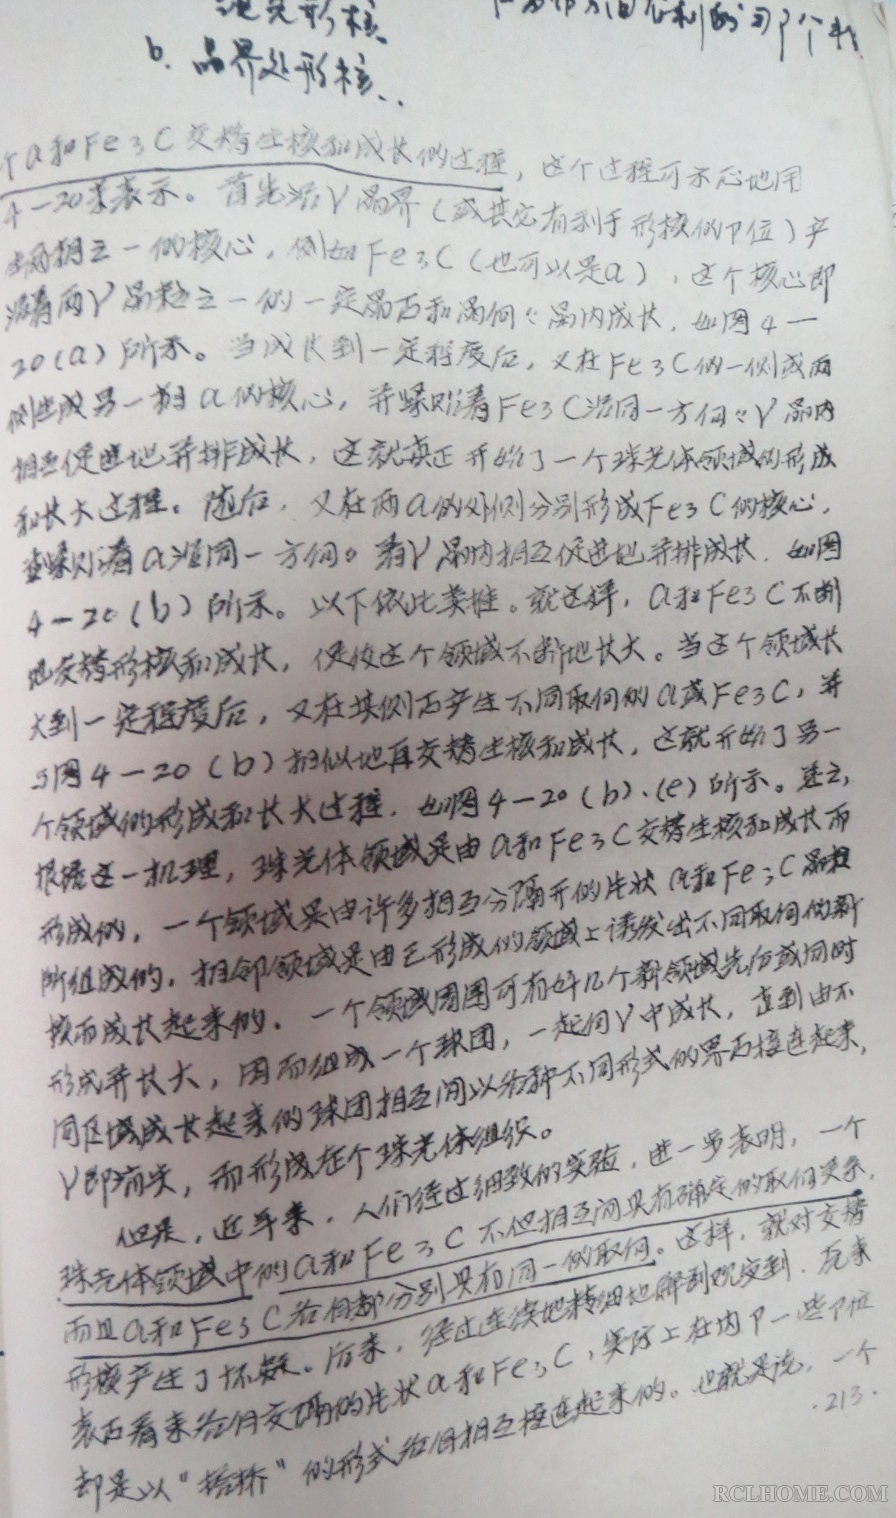 混晶形核
b. 晶界处形核..
个α和Fe3C交替生核和成长的过程，这个过程可示意地用
4—20来表示。首先沿γ晶界（或其它有利于形核的P位）产
生两相之一的核心，例如Fe3C（也可以是α），这个核心即
沿着两γ晶粒之一的一定晶面和晶向γ晶内成长，如图4—
20(a)所示。当成长到一定程度后，又在Fe3C的一侧或两
侧生成另一相α的核心，并紧贴着Fe3C沿同一方向γ晶内
相互促进地并排成长，这就真正开始了一个珠光体领域的形成
和长大过程。随后，又在两α的外侧分别形成Fe3C的核心，
并紧贴着α沿同一方向着γ晶内相互促进地并排成长，如图
4—20(b)所示。以下依此类推。就这样，α和Fe3C不断
地交替形核和成长，促使这个领域不断地长大。当这个领域长
大到一定程度后，又在其侧面产生不同取向的α或Fe3C，并
与图4—20(b)相似地再交替生核和成长，这就开始了另一
个领域的形成和长大过程，如图4—20(b)、(e)所示。总之，
根据这一机理，珠光体领域是由α和Fe3C交替生核和成长而
形成的，一个领域是由许多相互分隔开的片状α和Fe3C晶粒
所组成的，相邻领域是由已形成的领域上诱发出不同取向的新
核而成长起来的，一个领域周围可有好几个新领域先后或同时
形成并长大，因而组成一个球团，一起向γ中成长，直到由不
同区域成长起来的球团相互间以各种不同形式的界面接连起来，
γ即消失，而形成整个珠光体组织。
但是，近年来，人们经过细致的实验，进一步表明，一个
珠光体领域中的α和Fe3C不但相互间具有确定的取向关系，
而且α和Fe3C各自都分别具有同一的取向。这样，就对交替
形核产生了怀疑。后来，经过连续地精细地解剖观察到，原来
表面看来各自交隔的片状α和Fe3C，实际上在内P一些P位
却是以“搭桥”的形式各自相互接连起来的。也就是说，一个
·213·
RCLHOME.COM